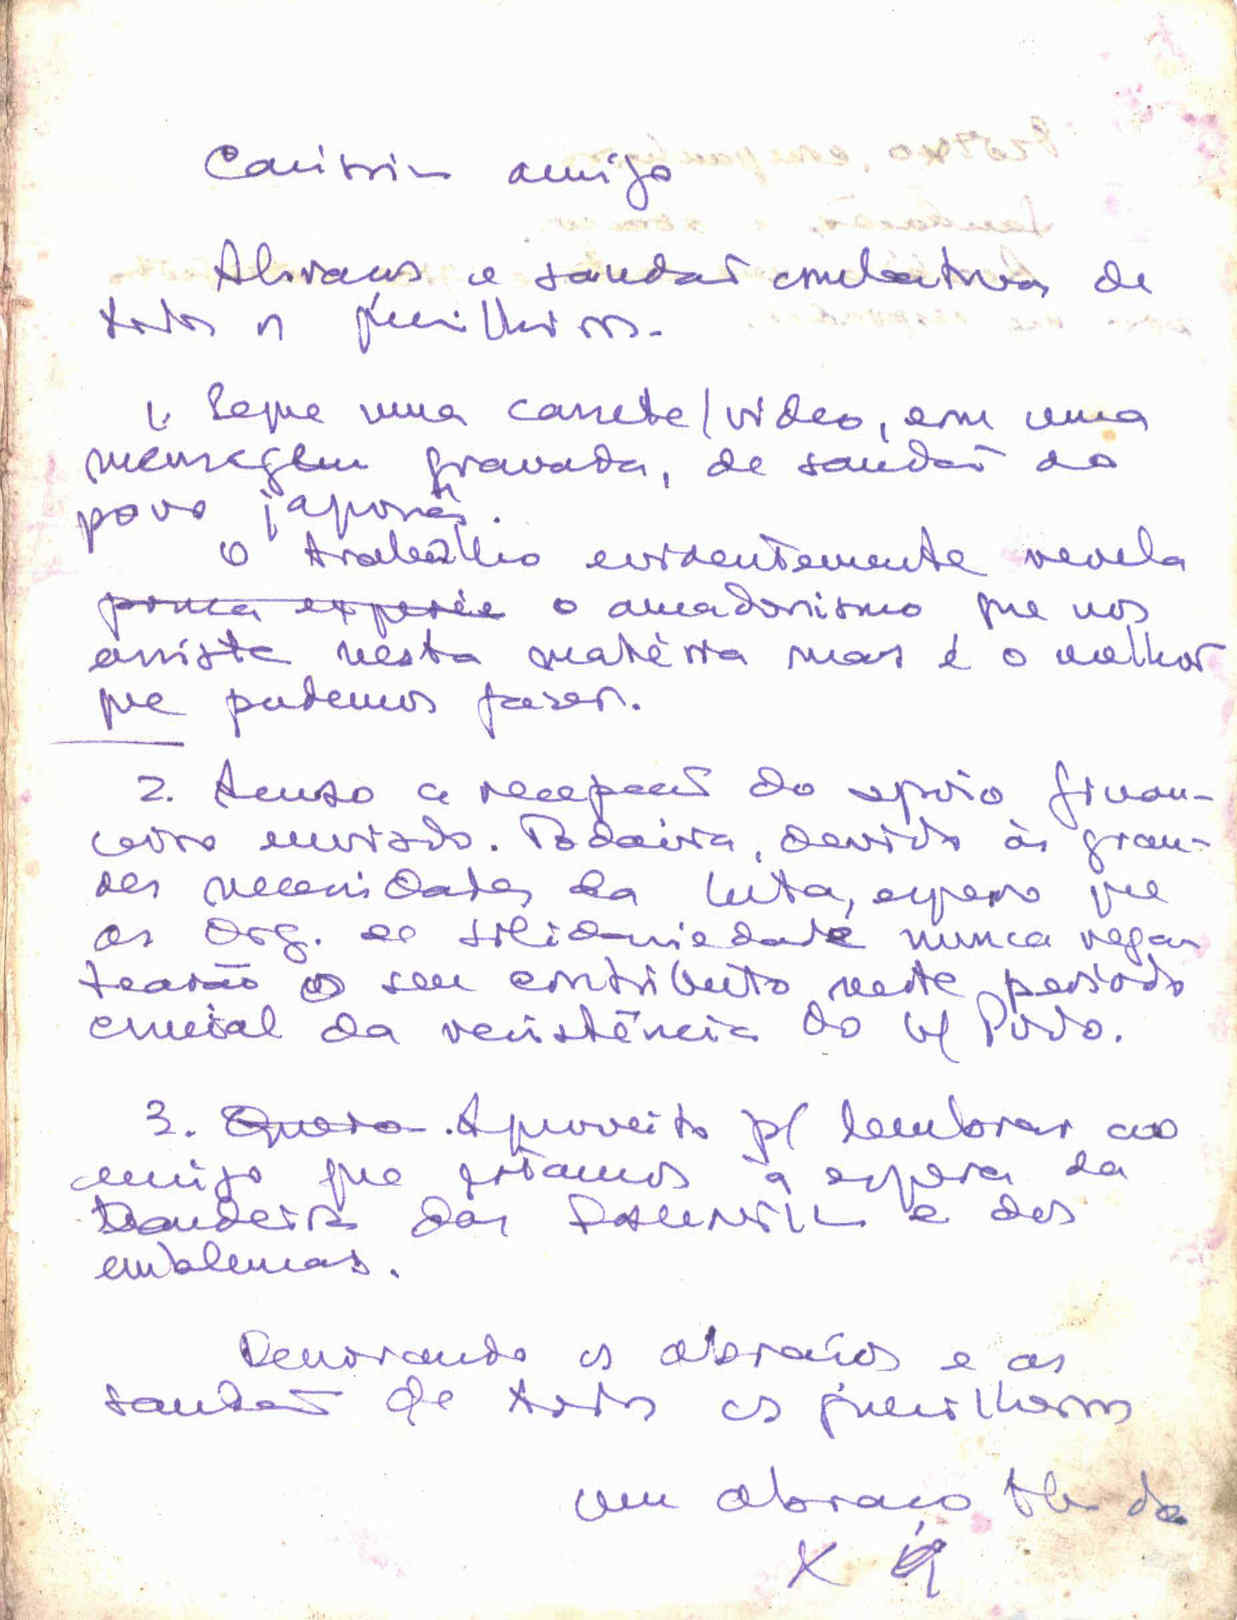 Caríssimo amigo
Abraços e saudaç combativas de
todos os guerilheiros.
1. Segue uma cassete/video, com uma
mensagem gravada, de saudaç ao
povo japonês.
O trabalho evidentemente revela
pouca experiê o amadorismo que nos
assiste nesta matéria mas é o melhor
que pudemos fazer.
2. Acuso a recepçaõ do apoio finan-
ceiro enviado. Todavia, devido às gran-
des necessidades da luta, espero que
as Org. de solidariedade nunca rega
tearão o seu contributo neste periodo
crucial da resistência do n/ Povo.
3. Quero. Aproveito p/ lembrar ao
amigo que estamos à espera da
bandeira das FALINTIL e dos
emblemas.
Renovando os abraços e as
saudaç de todos os guerilheiros
um abraço do
X